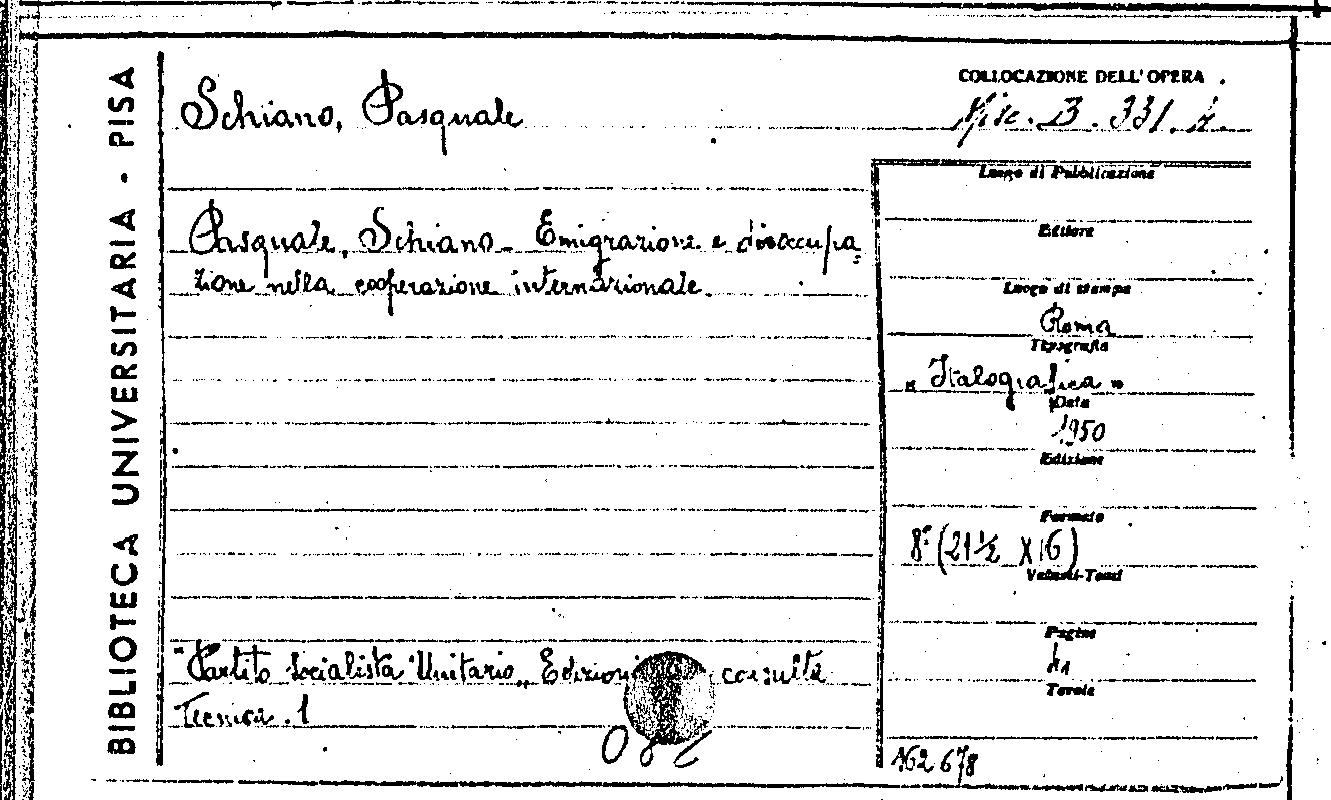 BIBLIOTECA UNIVERSITARIA - PISA
Schiano, Pasquale
COLLOCAZIONE DELL'OPERA
Misc. B. 331.
Pasquale, Schiano - Emigrazione e disoccupa=
zione nella cooperazione internazionale.
Luogo di Pubblicazione
Editore
Luogo di stampa
Roma
Tipografia
"Italografica"
Data
1950
Edizione
Formato
8° (21 ½ X 16)
Volumi-Tomi
Pagine
41
Tavole
"Partito Socialista Unitario" Edizioni consulta
Tecnica. 1
162678